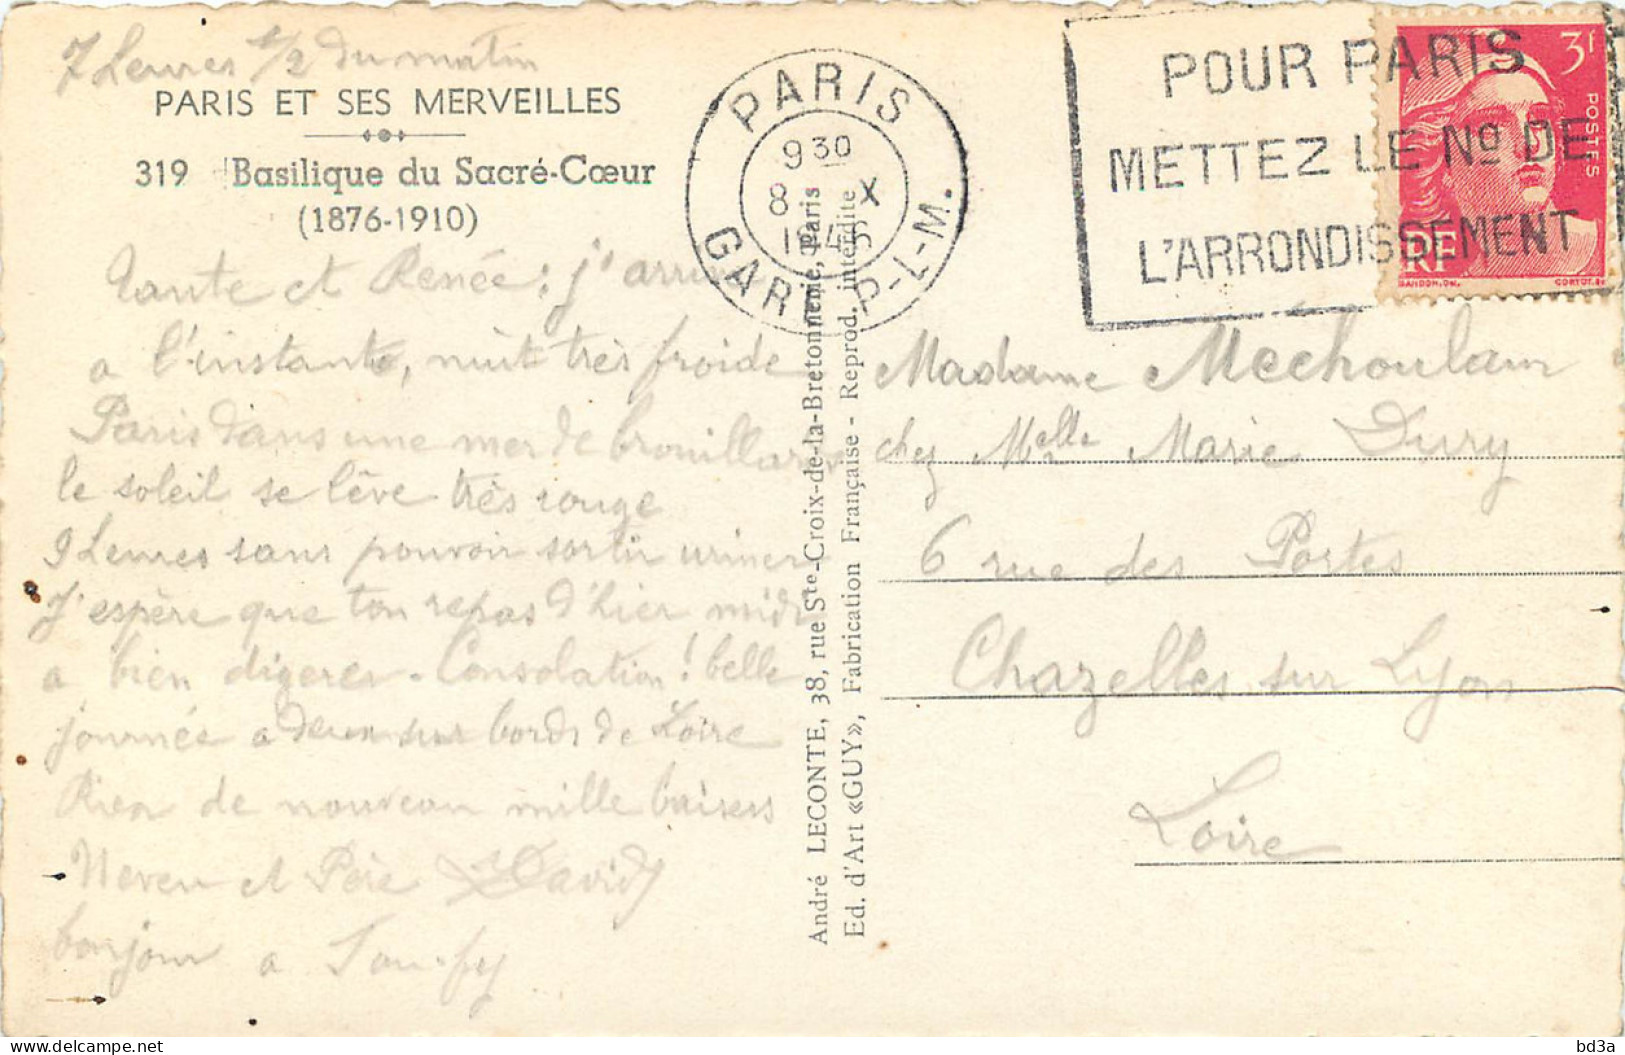 7 heures 1/2 du matin
PARIS ET SES MERVEILLES
319 Basilique du Sacré-Cœur
(1876-1910)
Tante et Renée : j'arrive
a l'instant, nuit très froide
Paris dans une mer de brouillard
le soleil se lève très rouge
9 heures sans pouvoir sortir uriner
J'espère que ton repas d'hier midi
a bien digerer. Consolation ! belle
journée a deux sur bords de Loire
Rien de nouveau mille baisers
Neveu et Père David
bonjour a Tou-fy
PARIS
9 30
8 X
1945
GARE P-L-M.
POUR PARIS
METTEZ LE No DE
L'ARRONDISSEMENT
3f
POSTES
RF
GANDON.DEL.
CORTOT.SC
André LECONTE, 38, rue Ste-Croix-de-la-Bretonnerie, Paris
Ed. d'Art «GUY», Fabrication Française - Reprod. interdite
Madame Mechoulam
chez Melle Marie Dury
6 rue des Portes
Chazelles sur Lyon
Loire
delcampe.net
bd3a